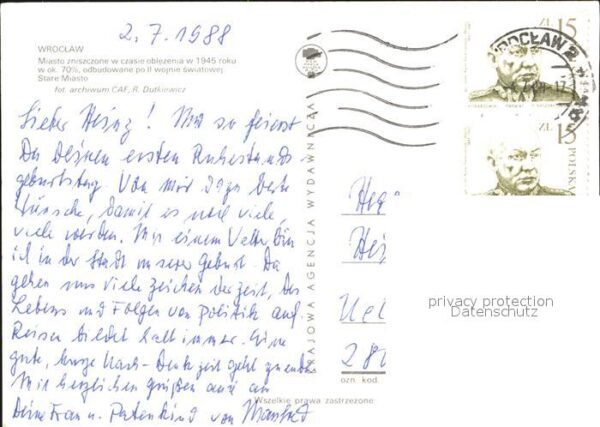 2.7.1988
WROCŁAW
Miasto zniszczone w czasie oblężenia w 1945 roku
w ok. 70%, odbudowane po II wojnie światowej.
Stare Miasto
fot. archiwum CAF, R. Dutkiewicz
KRAJOWA AGENCJA WYDAWNICZA
WROCŁAW 2
ZŁ 15
ZŁ 15
POLSKA
Lieber Heinz! Nun so feierst
Du Deinen ersten Ruhestands-
geburtstag. Von mir dazu beste
Wünsche, damit es noch viele,
viele werden. Mit einem Vetter bin
ich in der Stadt unserer Geburt. Da
gehen uns viele Zeichen der Zeit, des
Lebens und Folgen von Politik auf.
Reisen bildet halt immer. Eine
gute, kurze Nach-Denkzeit geht zu Ende
Mit herzlichen Grüßen auch an
Deine Frau u. Patenkind von Manfred
Hei
Uel
privacy protection
Datenschutz
ozn. kod.
Wszelkie prawa zastrzeżone